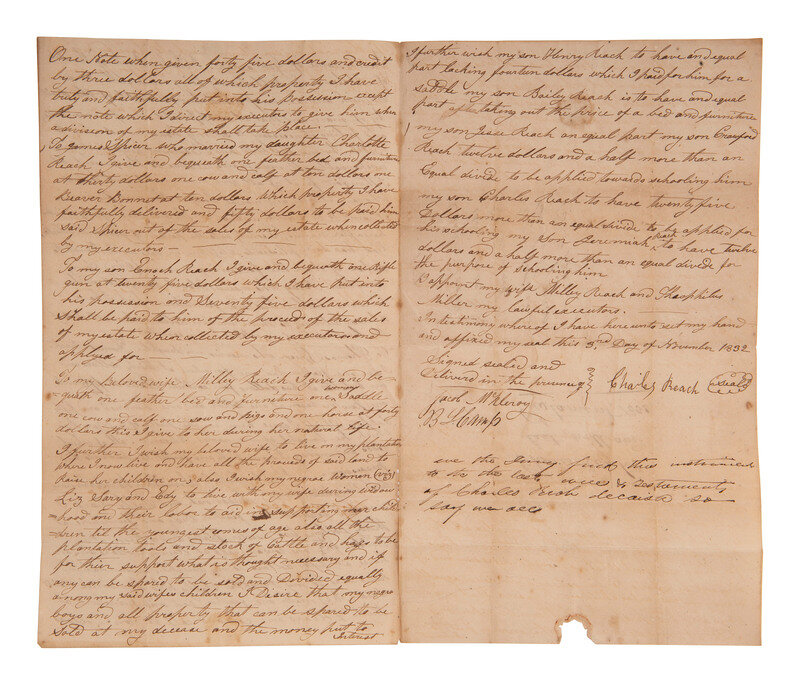 One Note when given forty five dollars and credit
by three dollars all of which property I have
truly and faithfully put into his possession except
the note which I direct my executors to give him when
a division of my estate shall take place.
To James Spicer who married my daughter Charlotte
Reach I give and bequeth one fether bed and furniture
at thirty dollars one cow and calf at ten dollars one
Beaver Bonnet at ten dollars Which property I have
faithfully delivered and fifty dollars to be paid him
said Spicer out of the sales of my estate when collected
by my executors —
To my son Enoch Reach I give and bequeth one Rifle
gun at twenty five dollars which I have put into
his possession and Seventy five dollars which
Shall be paid to him of the proceeds of the sales
of my estate when collected by my executors and
applyed for —
To my Beloved wife Milley Reach I give and be-
queth one feather bed and furniture one Saddle
one cow and calf one sow and pigs and one horse at forty
dollars this I give to her during her natural life.
I further I wish my beloved wife to live on my plantation
where I now live and have all the Proceeds of said land to
Raise her children on, also I wish my negroe Women
Liz Sary and City to live with my wife during widow
= hood and their labor to aid in supporting our chil
= dren til the youngest comes of age also all the
plantation tools and stock of Cattle and hogs to be
for their support what is thought necessary and if
any can be spared to be sold and Divided equally
among my said wifes children I Desire that my negro
boys and all property that can be spared to be
Sold at my decease and the money put to
Interest
I further wish my son Henry Reach to have and equal
part lacking fourteen dollars which I paid for him for a
Saddle my son Baily Reach is to have and equal
part after taking out the price of a bed and furniture
my son Jesse Reach an equal part my son Crawford
Reach twelve dollars and a half more than an
Equal divide to be applied towards schooling him
my son Charles Reach to have twenty five
Dollars more than an equal divide to be applied for
his schooling my Son Jeremiah Reach to have twelve
dollars and a half more than an equal divide for
the purpose of Schooling him
I appoint my wife Milley Reach and Theophilus
Miller my lawful executors.
In testimony where of I have here unto set my hand
and affixed my seal this 3rd Day of November 1832
Signed sealed and
Delivered in the presence of
Charles Reach (seal)
Jacob McElroy
B L Camp
we the Jury find this instrument
to be the last will & testaments
of Charles Reach deceased so
say we all